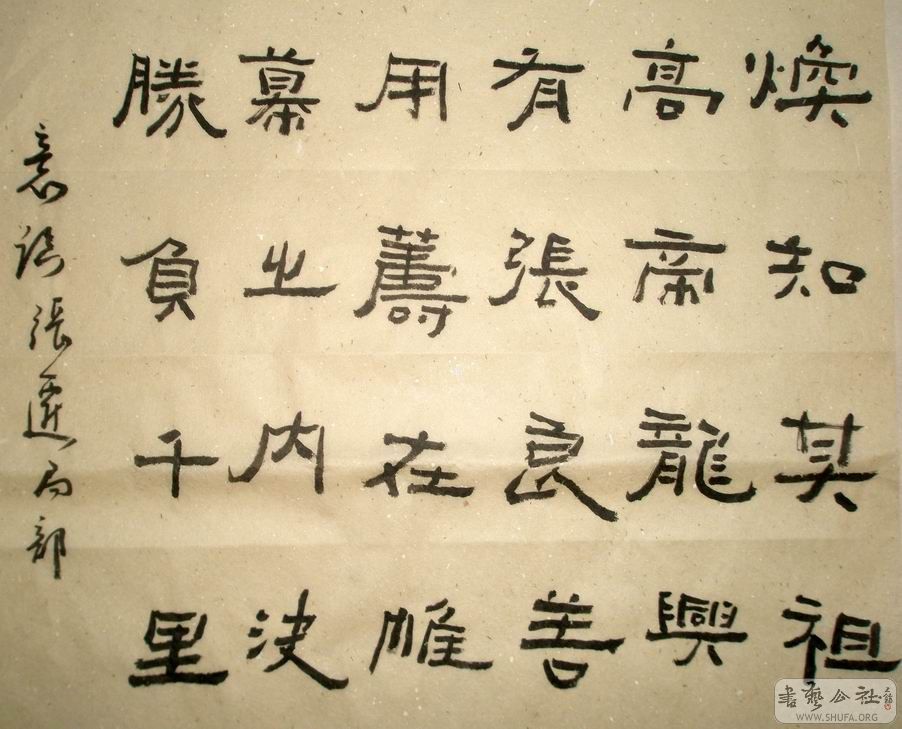 煥知其祖
高帝龍興
有張良善
用籌在帷
幕之內決
勝負千里
意臨張遷局部
書藝公社
WWW.SHUFA.ORG